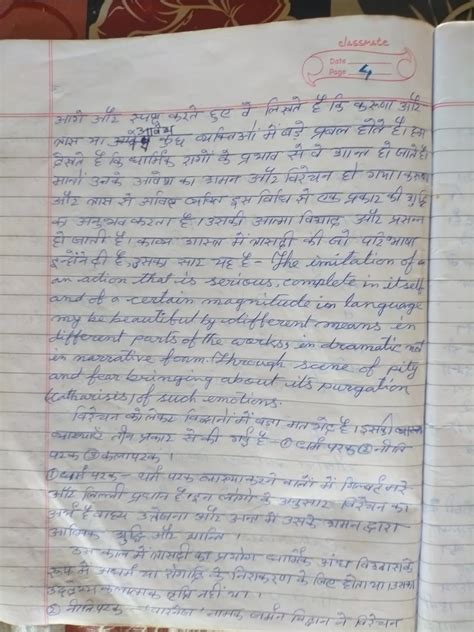 classmate
Date
Page 4
आगे और स्पष्ट करते हुए वे लिखते हैं कि करुणा और
त्रास का आवेश कुछ व्यक्तियों में बड़े प्रबल होते हैं। हम
देखते है कि धार्मिक रागों के प्रभाव से वे शान्त हो जाते है
मानों उनके आवेश का शमन और विरेचन हो गया। करुणा
और त्रास से आविष्ट व्यक्ति इस विधि से एक प्रकार की शुद्धि
का अनुभव करता है। उसकी आत्मा विशद और प्रसन्न
हो जाती है। काव्य शास्त्र में त्रासदी की जो परिभाषा
इन्होंने दी है, उसका सार यह है - The imitation of
an action that is serious, complete in itself
and of a certain magnitude in language
may be beautiful by different means in
different parts of the works in dramatic not
in narrative form. Through scene of pity
and fear bringing about its purgation
(catharsis) of such emotions.
विरेचन को लेकर विद्वानों में बड़ा मत भेद है। इसकी
व्याख्याएं तीन प्रकार से की गई है - ① धर्म परक ② नीति
परक ③ कलापरक।
① धर्म परक - धर्म परक व्याख्या करने वालों में गिल्बर्ट मरे
और लिल्ली प्रधान है। इन लोगों के अनुसार विरेचन का
अर्थ है बाह्य उत्तेजना और अन्त में उसके शमन द्वारा
आत्मिक शुद्धि और शान्ति।
उस काल में त्रासदी का प्रयोग धार्मिक अंध विश्वास के
रूप में अधर्म या रोगादि के निराकरण के लिए होता था। उसका
उद्देश्य कलात्मक तृप्ति नहीं था।
② नीतिपरक - नामक जर्मन विद्वान ने विरेचन